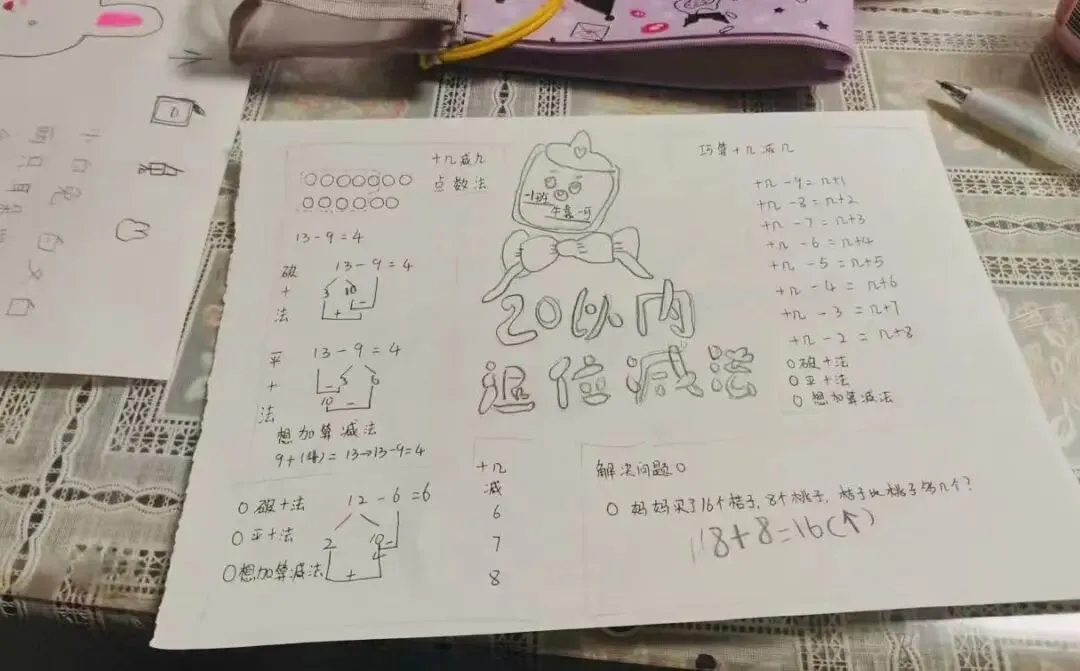 十几减九
点数法
13-9=4
破十法
13-9=4
3 10
+ -
平十法
13-9=4
- 3 6
10 -
想加算减法
9+(4)=13→13-9=4
破十法
12-6=6
平十法
想加算减法
2 10
4
+
一班
20以内
退位减法
十几
减
6
7
8
巧算十几减几
十几-9=几+1
十几-8=几+2
十几-7=几+3
十几-6=几+4
十几-5=几+5
十几-4=几+6
十几-3=几+7
十几-2=几+8
破十法
平十法
想加算减法
解决问题
妈妈买了16个桔子,8个桃子,桔子比桃子多几个?
8+8=16(个)
小白兔 白又白
两只耳朵